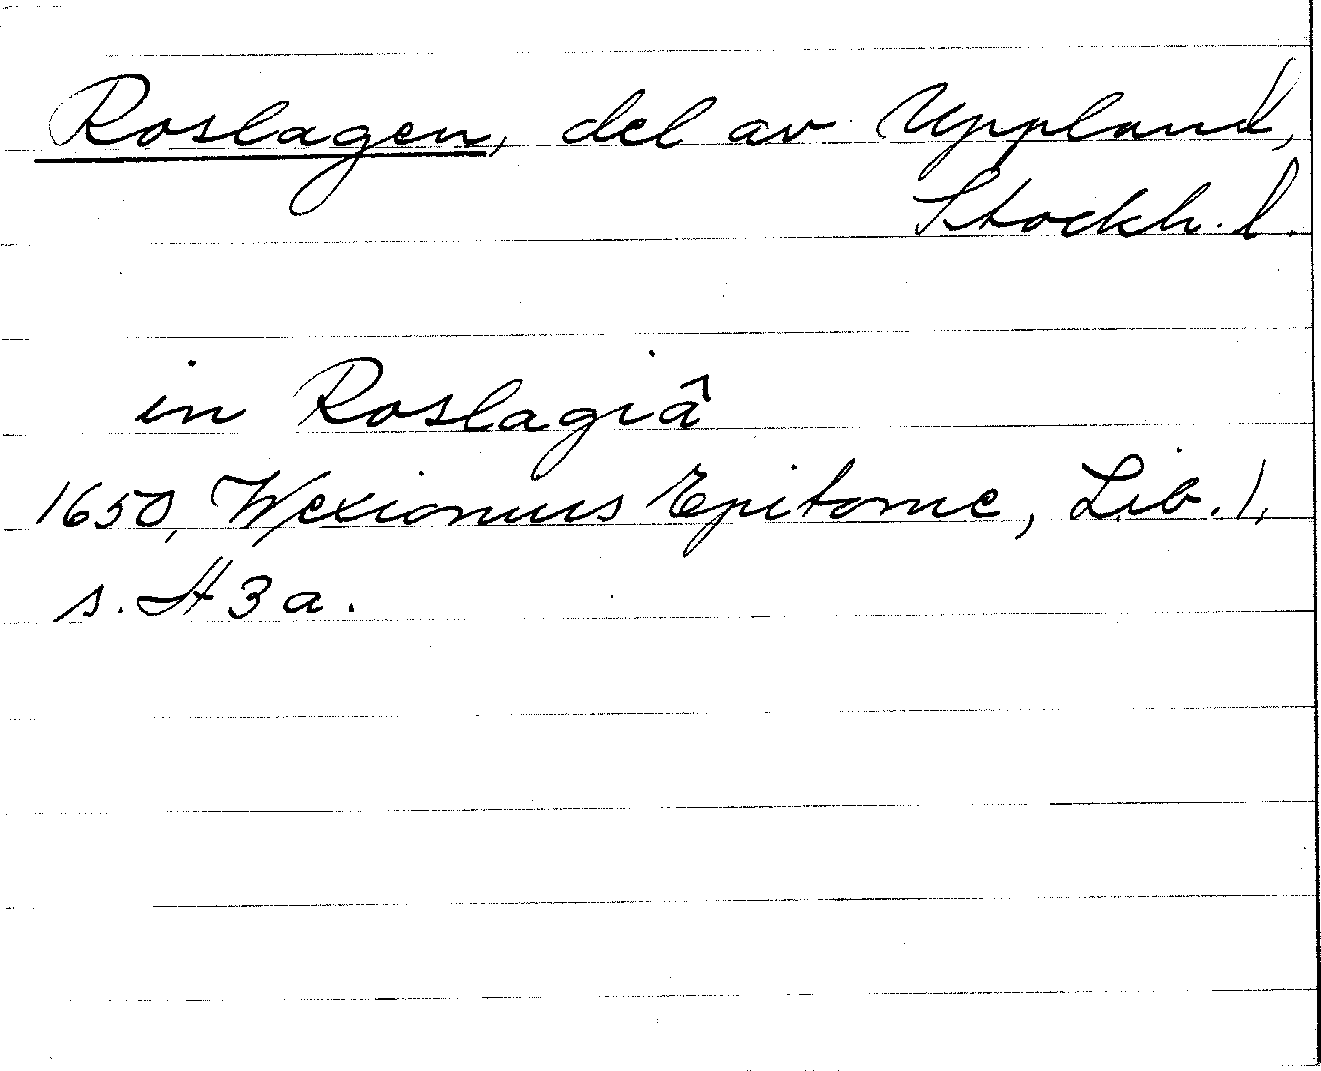 Roslagen, del av Uppland,
Stockh. l.
in Roslagiâ
1650, Wexionius Epitome, Lib. 1,
s. H3a.